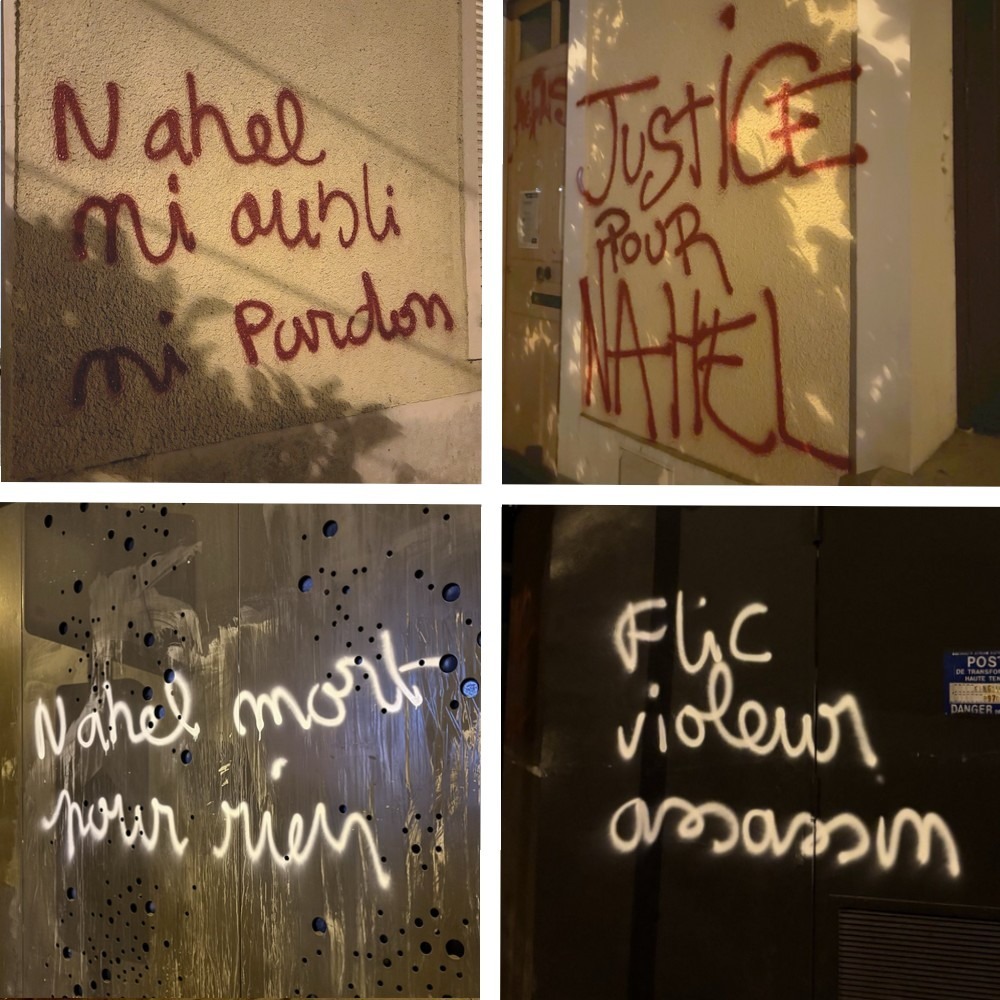 Nahel
ni oubli
ni Pardon
JUSTiCE
POUR
NAHEL
Nahel mort
pour rien
Flic
violeur
assassin
POST
HAUTE TEN
DANGER